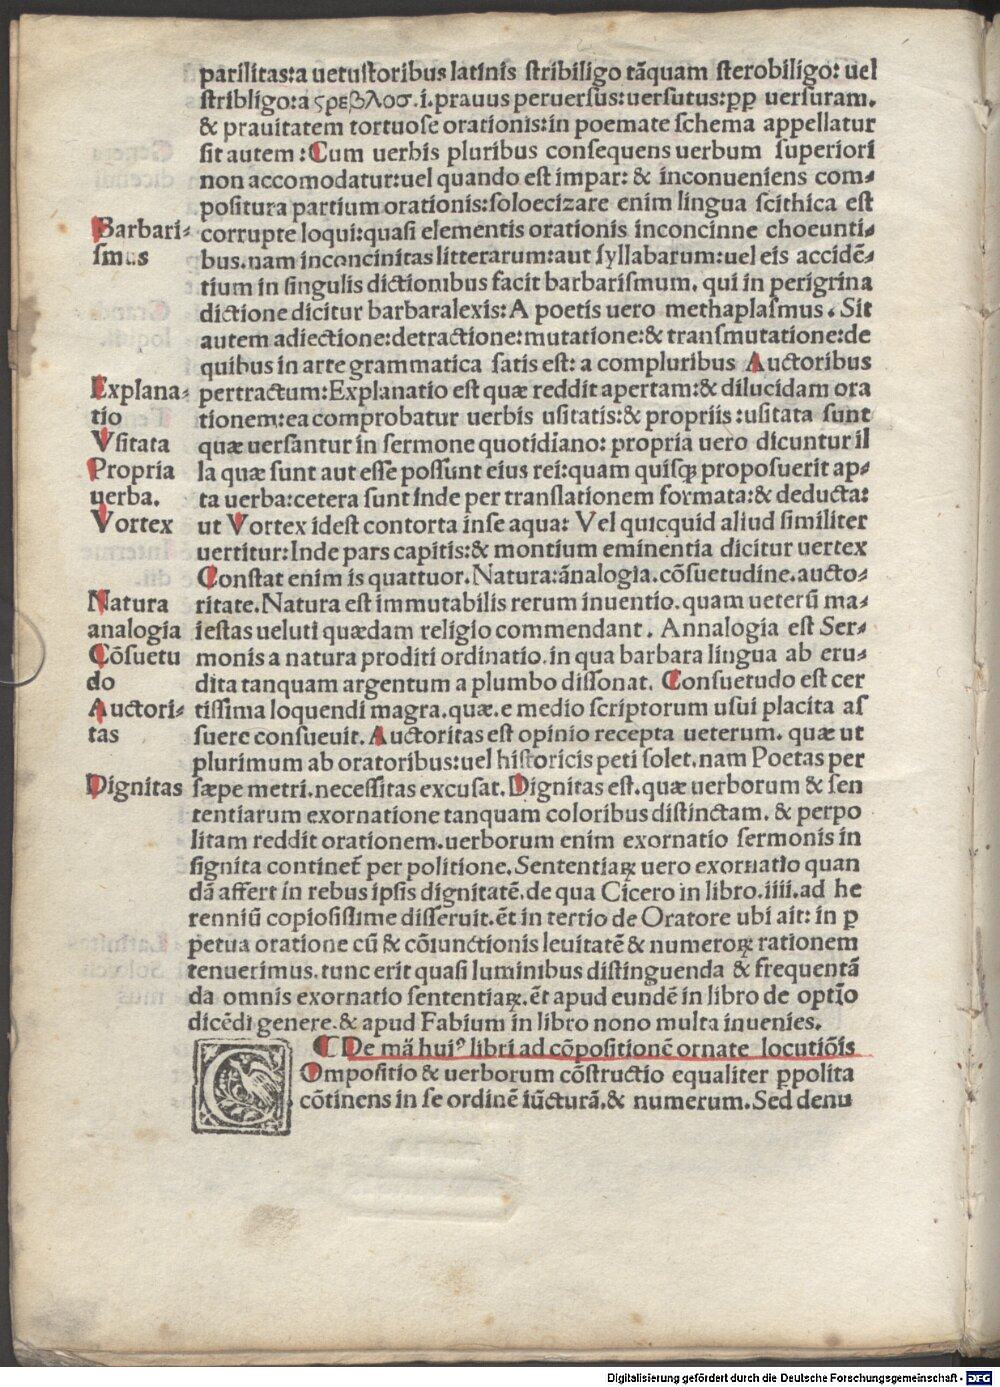 parilitas:a uetustoribus latinis stribiligo tãquam sterobiligo: uel
stribligo:a ςρεβλοσ.i.prauus peruersus:uersutus:ꝓꝑ uersuram.
& prauitatem tortuose orationis:in poemate schema appellatur
sit autem:Cum uerbis pluribus consequens uerbum superiori
non accomodatur:uel quando est impar: & inconueniens com-
positura partium orationis:soloecizare enim lingua scithica est
Barbari-
smus
corrupte loqui:quasi elementis orationis inconcinne choeunti-
bus.nam inconcinitas litterarum:aut syllabarum:uel eis accidẽ-
tium in singulis dictionibus facit barbarismum. qui in perigrina
dictione dicitur barbaralexis: A poetis uero methaplasmus. Sit
autem adiectione:detractione:mutatione:& transmutatione:de
quibus in arte grammatica satis est: a compluribus Auctoribus
Explana-
tio
Vsitata
Propria
uerba.
Vortex
pertractum:Explanatio est quæ reddit apertam:& dilucidam ora
tionem:ea comprobatur uerbis usitatis:& propriis:usitata sunt
quæ uersantur in sermone quotidiano: propria uero dicuntur il
la quæ sunt aut esse possunt eius rei:quam quisqȝ proposuerit ap-
ta uerba:cetera sunt inde per translationem formata:& deducta:
ut Vortex idest contorta inse aqua: Vel quicquid aliud similiter
uertitur:Inde pars capitis:& montium eminentia dicitur uertex
Constat enim is quattuor.Natura:ãnalogia.cõsuetudine.aucto-
Natura
analogia
Cõsuetu
do
Auctori-
tas
ritate.Natura est immutabilis rerum inuentio.quam ueterũ ma-
iestas ueluti quædam religio commendant. Annalogia est Ser-
monis a natura proditi ordinatio.in qua barbara lingua ab eru-
dita tanquam argentum a plumbo dissonat. Consuetudo est cer
tissima loquendi magra.quæ.e medio scriptorum usui placita as
suere consueuit. Auctoritas est opinio recepta ueterum. quæ ut
plurimum ab oratoribus:uel historicis peti solet.nam Poetas per
Dignitas
sæpe metri.necessitas excusat.Dignitas est.quæ uerborum & sen
tentiarum exornatione tanquam coloribus distinctam. & perpo
litam reddit orationem.uerborum enim exornatio sermonis in
signita continet̃ per politione.Sententiaꝝ uero exornatio quan
dã affert in rebus ipsis dignitatẽ.de qua Cicero in libro.iiii.ad he
renniũ copiosissime disseruit.ẽt in tertio de Oratore ubi ait: in ꝑ
petua oratione cũ & cõiunctionis leuitatẽ & numeroꝝ rationem
tenuerimus.tunc erit quasi luminibus distinguenda & frequentã
da omnis exornatio sententiaꝝ.ẽt apud eundẽ in libro de optĩo
dicẽdi genere.& apud Fabium in libro nono multa inuenies.
¶ De mã huiꝰ libri ad cõpositionẽ ornate locutiõis
COmpositio & uerborum cõstructio equaliter ꝑpolita
cõtinens in se ordinẽ iũcturã.& numerum.Sed denu
Digitalisierung gefördert durch die Deutsche Forschungsgemeinschaft - DFG